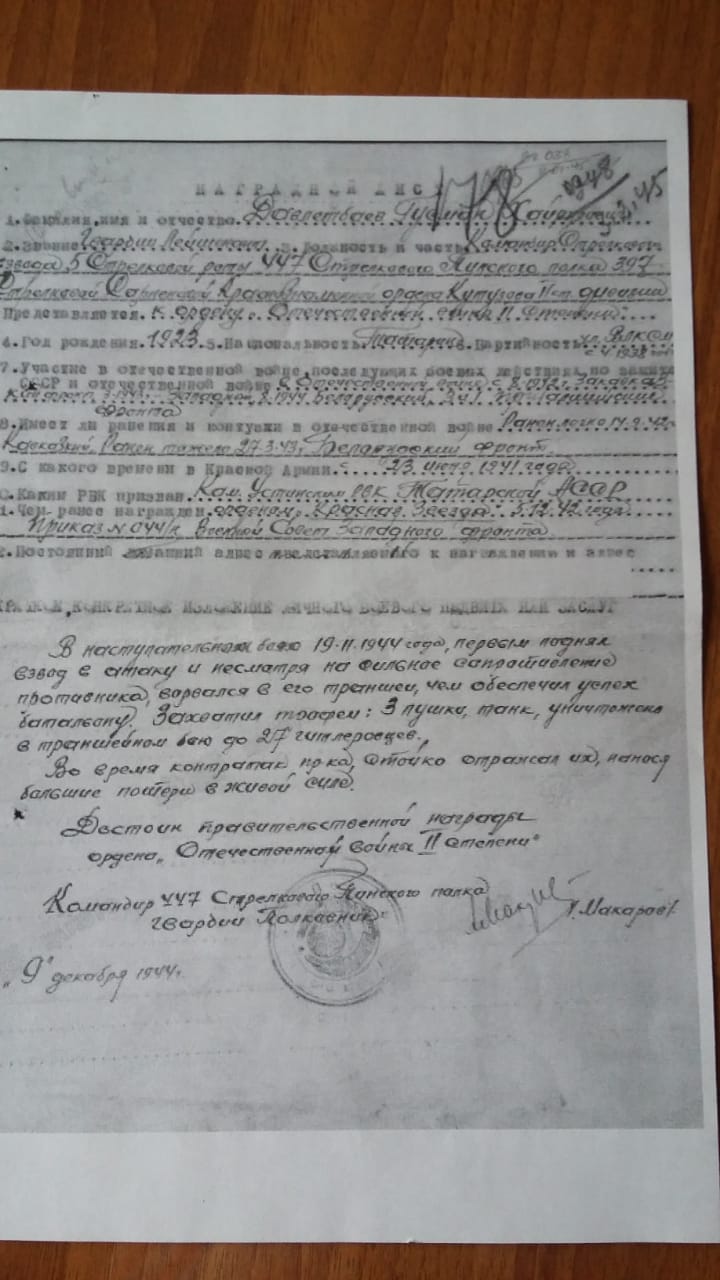 НАГРАДНОЙ ЛИСТ
178
0348
1. Фамилия, имя и отчество. Давлетбаев Гусман
2. Звание Гвардии Лейтенант 3. Должность и часть Командир Стрелкового
взвода 5 Стрелковой роты 447 Стрелкового Пинского полка 397
Стрелковой Сарненской Краснознаменной ордена Кутузова II ст. дивизии
Представляется. к ордену "Отечественной войны II Степени"
4. Год рождения. 1923. 5. Национальность. Татарин 6. Партийность чл. ВЛКСМ
с 1938
7. Участие в гражданской войне, последующих боевых действиях по защите
СССР и отечественной войне
Фронта
8. Имеет ли ранения и контузии в отечественной войне Ранен легко 14.9.42
Ранен тяжело 27.3.43г фронт
9. С какого времени в Красной Армии. с 23 июня 1941 года
0. Каким РВК призван Кам. Устинским РВК Татарской АССР
1. Чем ранее награжден орденом, Красная Звезда. 5.12.42 года
Приказ N 044/н Военной Совет Западного фронта
2. Постоянный домашний адрес представляемого к награждению и адрес
КРАТКОЕ, КОНКРЕТНОЕ ИЗЛОЖЕНИЕ ЛИЧНОГО БОЕВОГО ПОДВИГА ИЛИ ЗАСЛУГ
В наступательном бою 19.11.1944 года, первым поднял
взвод в атаку и несмотря на сильное сапротивление
противника, ворвался в его траншеи, чем обеспечил успех
батальону. Захватил трофеи: 3 пушки, танк, уничтожено
в траншейном бою до 27 гитлеровцев.
Во время контратак пр-ка, стойко отражал их, нанося
большие потери в живой силе.
Достоин правительственной награды
ордена "Отечественной войны II степени"
Командир 447 Стрелкового Пинского полка
Гвардии Полковник
/Макаров/.
"9" декабря 1944г.